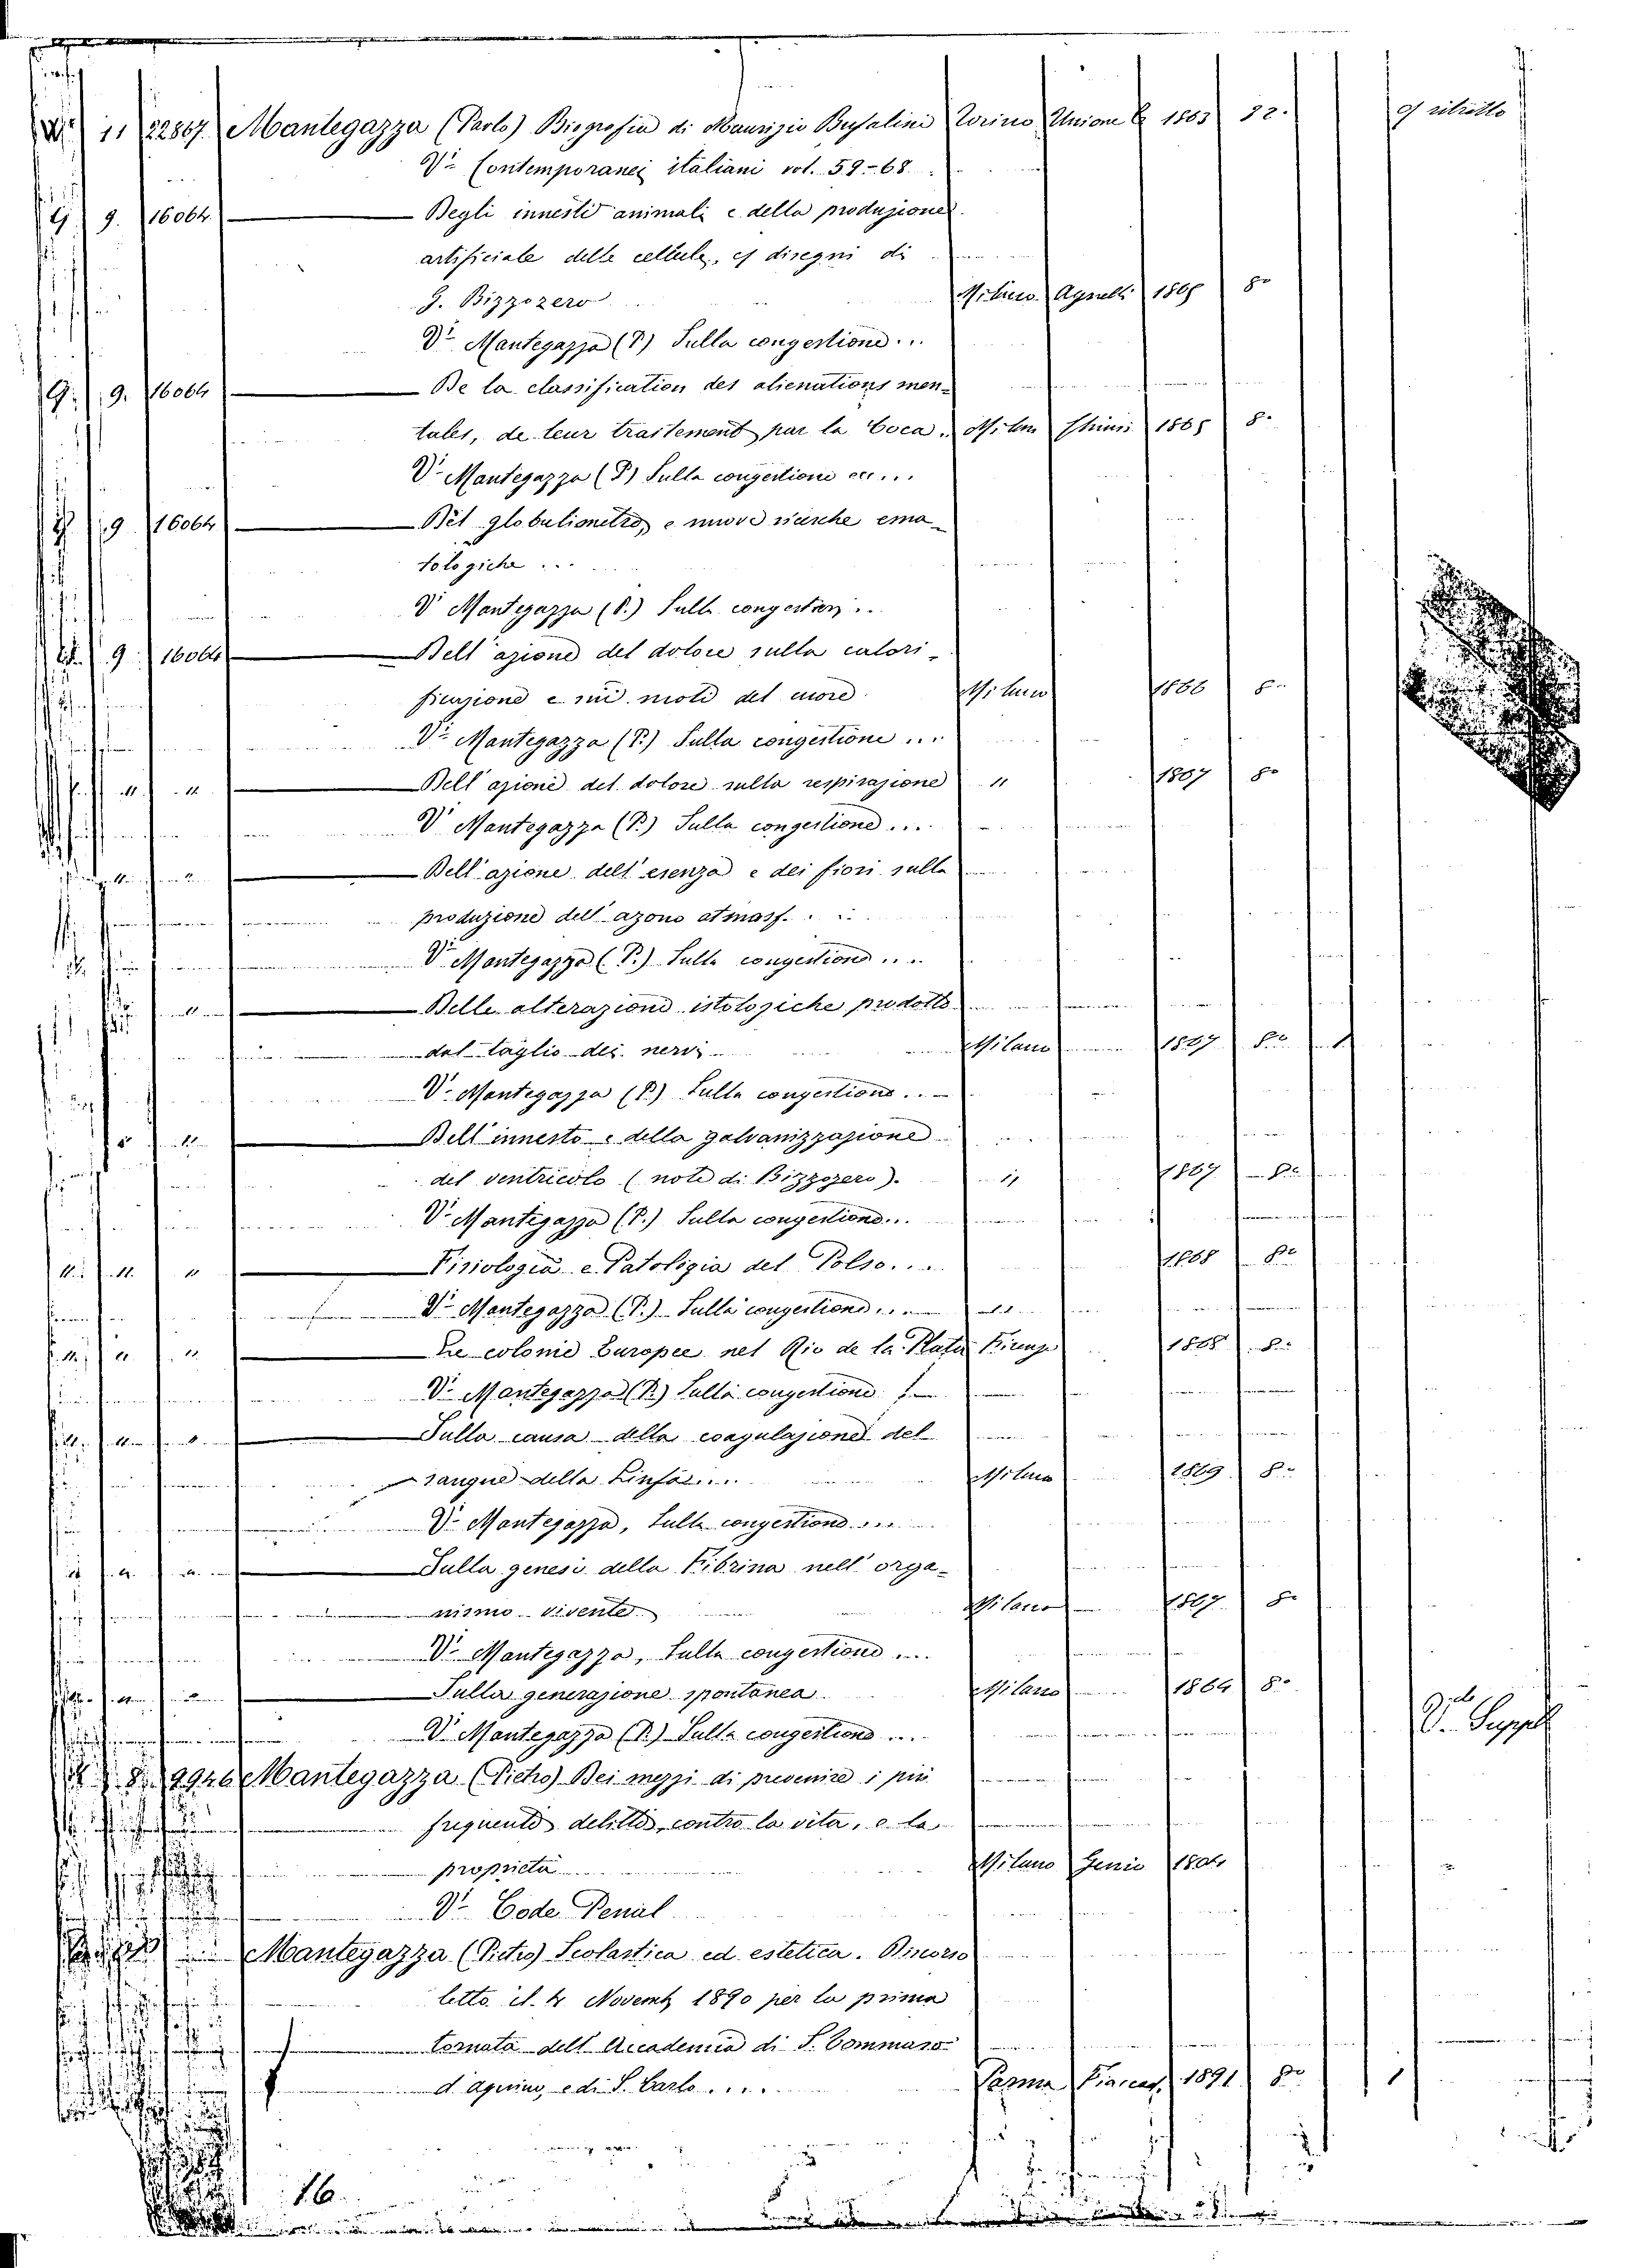 11 22867 Mantegazza (Paolo) Biografia di Maurizio Bufalini Torino Unione 1863 32. c/ ritratto
Vi Contemporanei italiani vol. 59-68
G. 9. 16064 Degli innesti animali e della produzione
artificiale delle cellule, c/ disegni di
G. Bizzozero Milano Agnelli 1865 8°
Vi Mantegazza (P) Sulla congestione...
G. 9. 16064 De la classification des alienations men-
tales, de leur traitement par la Coca. Milan 1865 8°
Vi Mantegazza (P) Sulla congestione ecc...
9 16064 Del globulimetro, e nuove ricerche ema-
tologiche...
Vi Mantegazza (P.) Sulla congestion...
9 16064 Dell'azione del dolore sulla calori-
ficazione e sui moti del cuore Milano 1866 8°
Vi Mantegazza (P.) Sulla congestione...
" " Dell'azione del dolore sulla respirazione " 1867 8°
Vi Mantegazza (P.) Sulla congestione...
Dell'azione dell'esenza e dei fiori sulla
produzione dell'azono atmosf...
Vi Mantegazza (P.) Sulla congestione...
" Delle alterazioni istologiche prodotte
dal taglio dei nervi Milano 1867 8° 1
Vi Mantegazza (P.) Sulla congestione...
" Dell'innesto e della galvanizzazione
del ventricolo (note di Bizzozero). " 1867 8°
Vi Mantegazza (P.) Sulla congestione...
" " " Fisiologia e Patologia del Polso... 1868 8°
Vi Mantegazza (P.) Sulla congestione...
" " " Le colonie Europee nel Rio de la Plata Firenze 1868 8°
Vi Mantegazza (P.) Sulla congestione
" " " Sulla causa della coagulazione del
sangue della Linfa... Milano 1869 8°
Vi Mantegazza, Sulla congestione...
" " " Sulla genesi della Fibrina nell'orga-
nismo vivente Milano 1867 8°
Vi Mantegazza, Sulla congestione...
" " " Sulla generazione spontanea Milano 1864 8°
Vi Mantegazza (P.) Sulla congestione...
8. 9926 Mantegazza (Pietro) Dei mezzi di prevenire i più
frequenti delitti, contro la vita, e la
proprietà Milano Genio 1804
Vi Code Penal
Mantegazza (Pietro) Scolastica ed estetica. Discorso
letto il 4 Novemb 1890 per la prima
tornata dell'Accademia di S. Tommaso
d'Aquino, e di S. Carlo.... Parma 1891 8° 1
16.